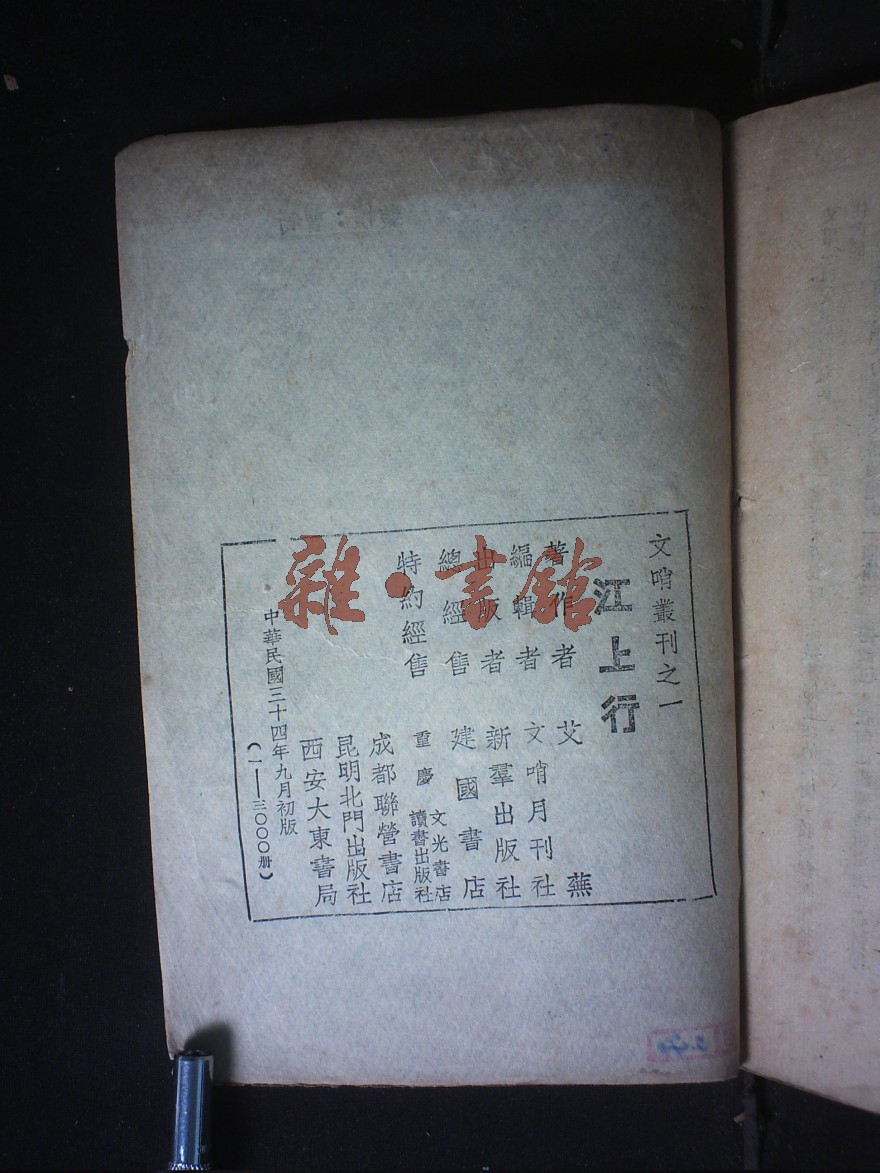 文哨叢刊之一
江上行
著作者 艾蕪
編輯者 文哨月刊社
出版者 新羣出版社
總經售 建國書店
特約經售 重慶 文光書店
讀書出版社
成都聯營書店
昆明北門出版社
西安大東書局
中華民國三十四年九月初版
(一——三〇〇〇册)
雜·書館